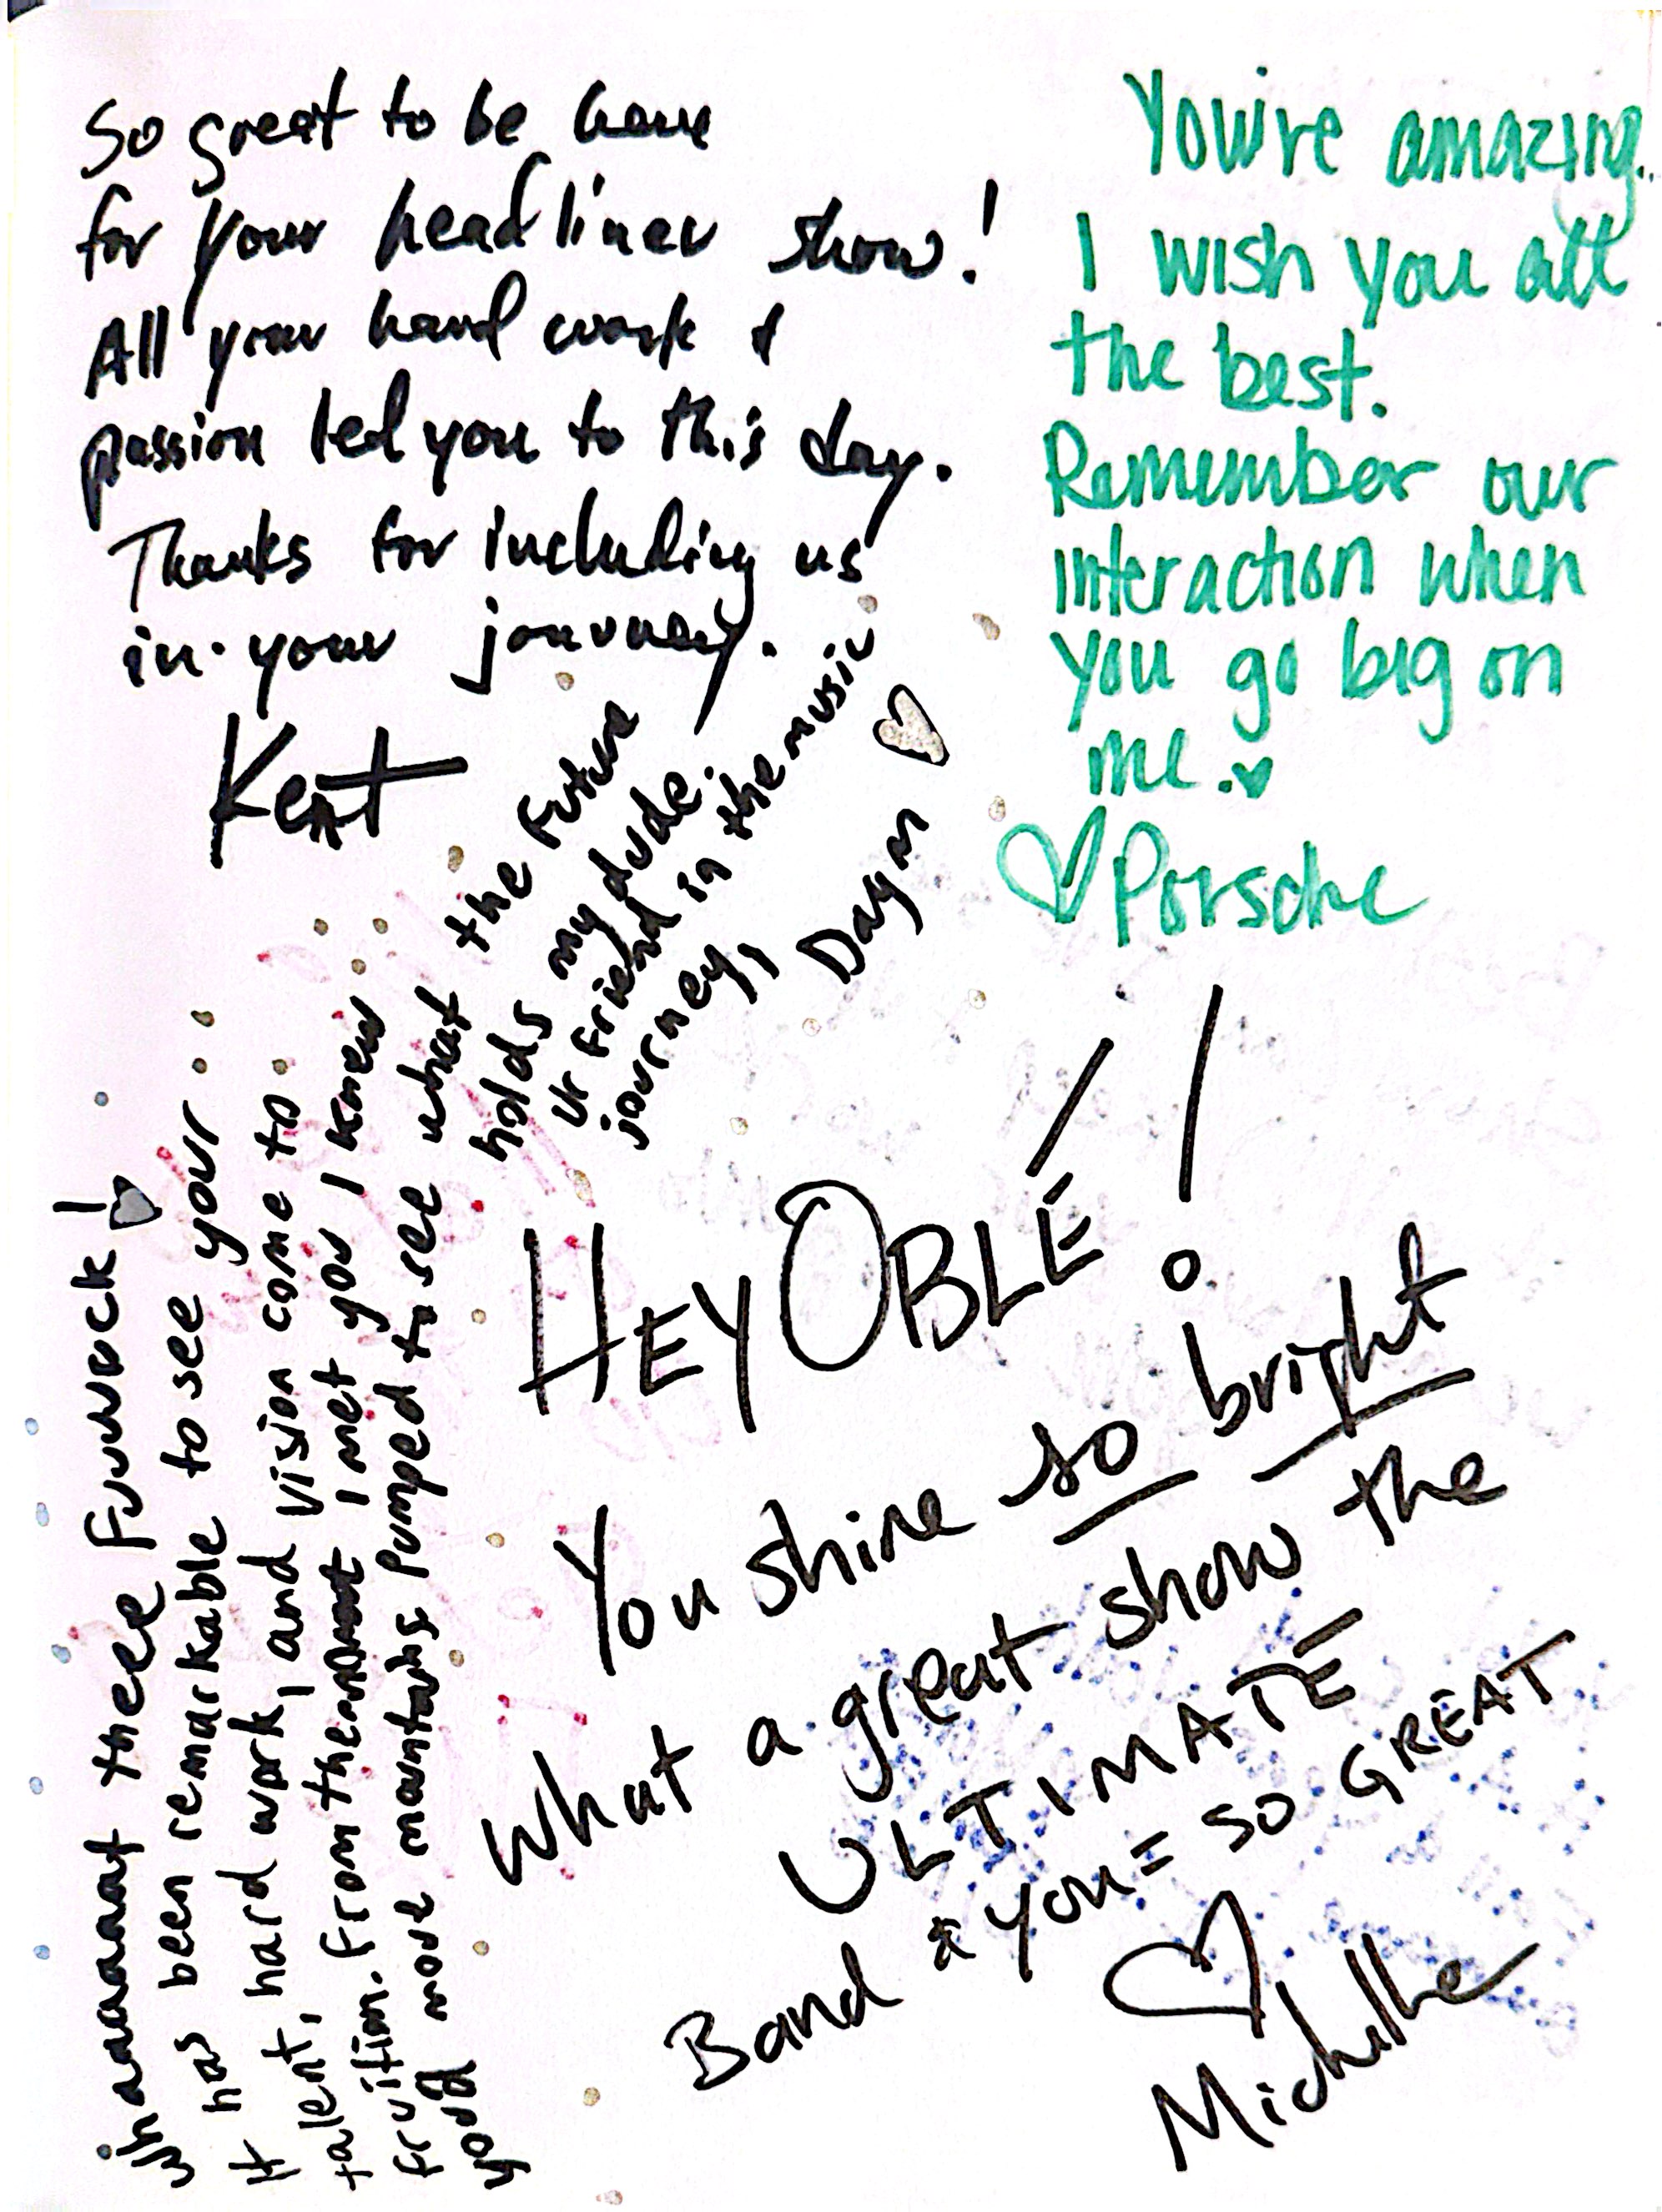 So great to be here
for your headliner show!
All your hard work &
passion led you to this day.
Thanks for including us
in your journey.
Kent
You're amazing.
I wish you all
the best.
Remember our
interaction when
you go big on
me.
Porsche
Whaaaaaaat thee Fuuuuck!
It has been remarkable to see your...
talent, hard work, and vision come to
fruition. From the moment I met you I knew
you'd move mountains. Pumped to see what the future
holds my dude.
Ur friend in the music
journey,
Daym
HEY OBLÉ!
You shine so bright
What a great show the
ULTIMATE
Band + you = SO GREAT
Michelle